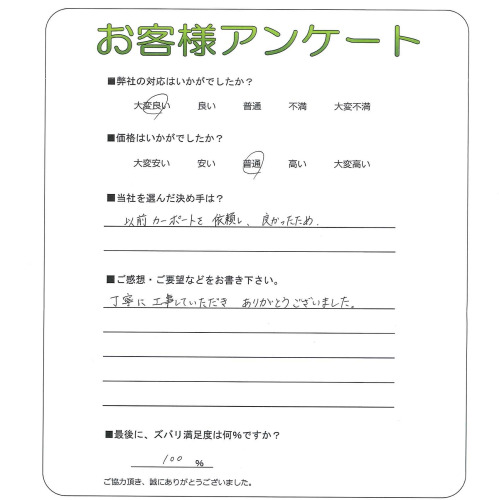 お客様アンケート
■弊社の対応はいかがでしたか？
大変良い 良い 普通 不満 大変不満
■価格はいかがでしたか？
大変安い 安い 普通 高い 大変高い
■当社を選んだ決め手は？
以前カーポートを依頼し、良かったため．
■ご感想・ご要望などをお書き下さい。
丁寧に工事していただき ありがとうございました。
■最後に、ズバリ満足度は何%ですか？
100 %
ご協力頂き、誠にありがとうございました。